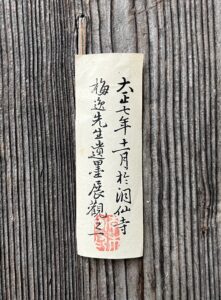 大正七年十一月於洞仙寺
梅逸先生遺墨展觀之